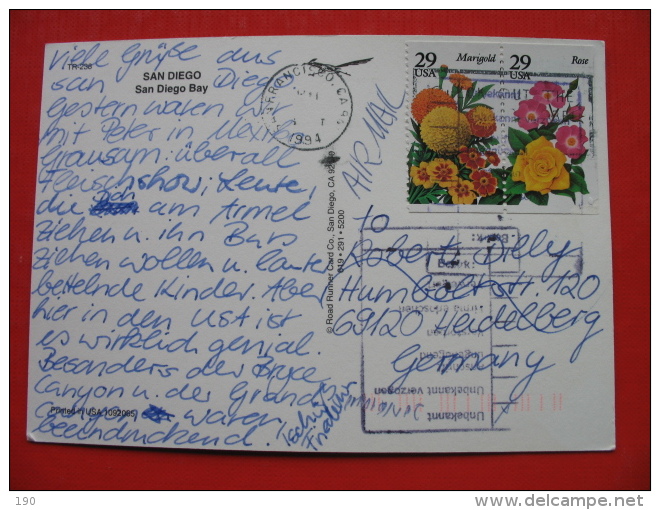 TR-236
SAN DIEGO
San Diego Bay
Viele Grüße aus
San Diego
Gestern waren wir
mit Peter in Mexiko
Grausam: überall
Fleischshow; Leute,
die am Ärmel
ziehen u. ihn Bars
ziehen wollen u. lauter
bettelnde Kinder. Aber
hier in den USA ist
es wirklich genial.
Besonders der Bryce
Canyon u. der Grand
waren
beeindruckend.
Tschüß
Friederike
Printed USA (092085)
© Road Runner Card Co., San Diego, CA
619 • 291 • 5200
1994
AIR MAIL
29
USA
Marigold
29
USA
Rose
to
Robert Diely
Humboldtstr. 120
69120 Heidelberg
Germany
Bezirk:
Unbekannt verzogen
Unbekannt
190
www.delcampe.net